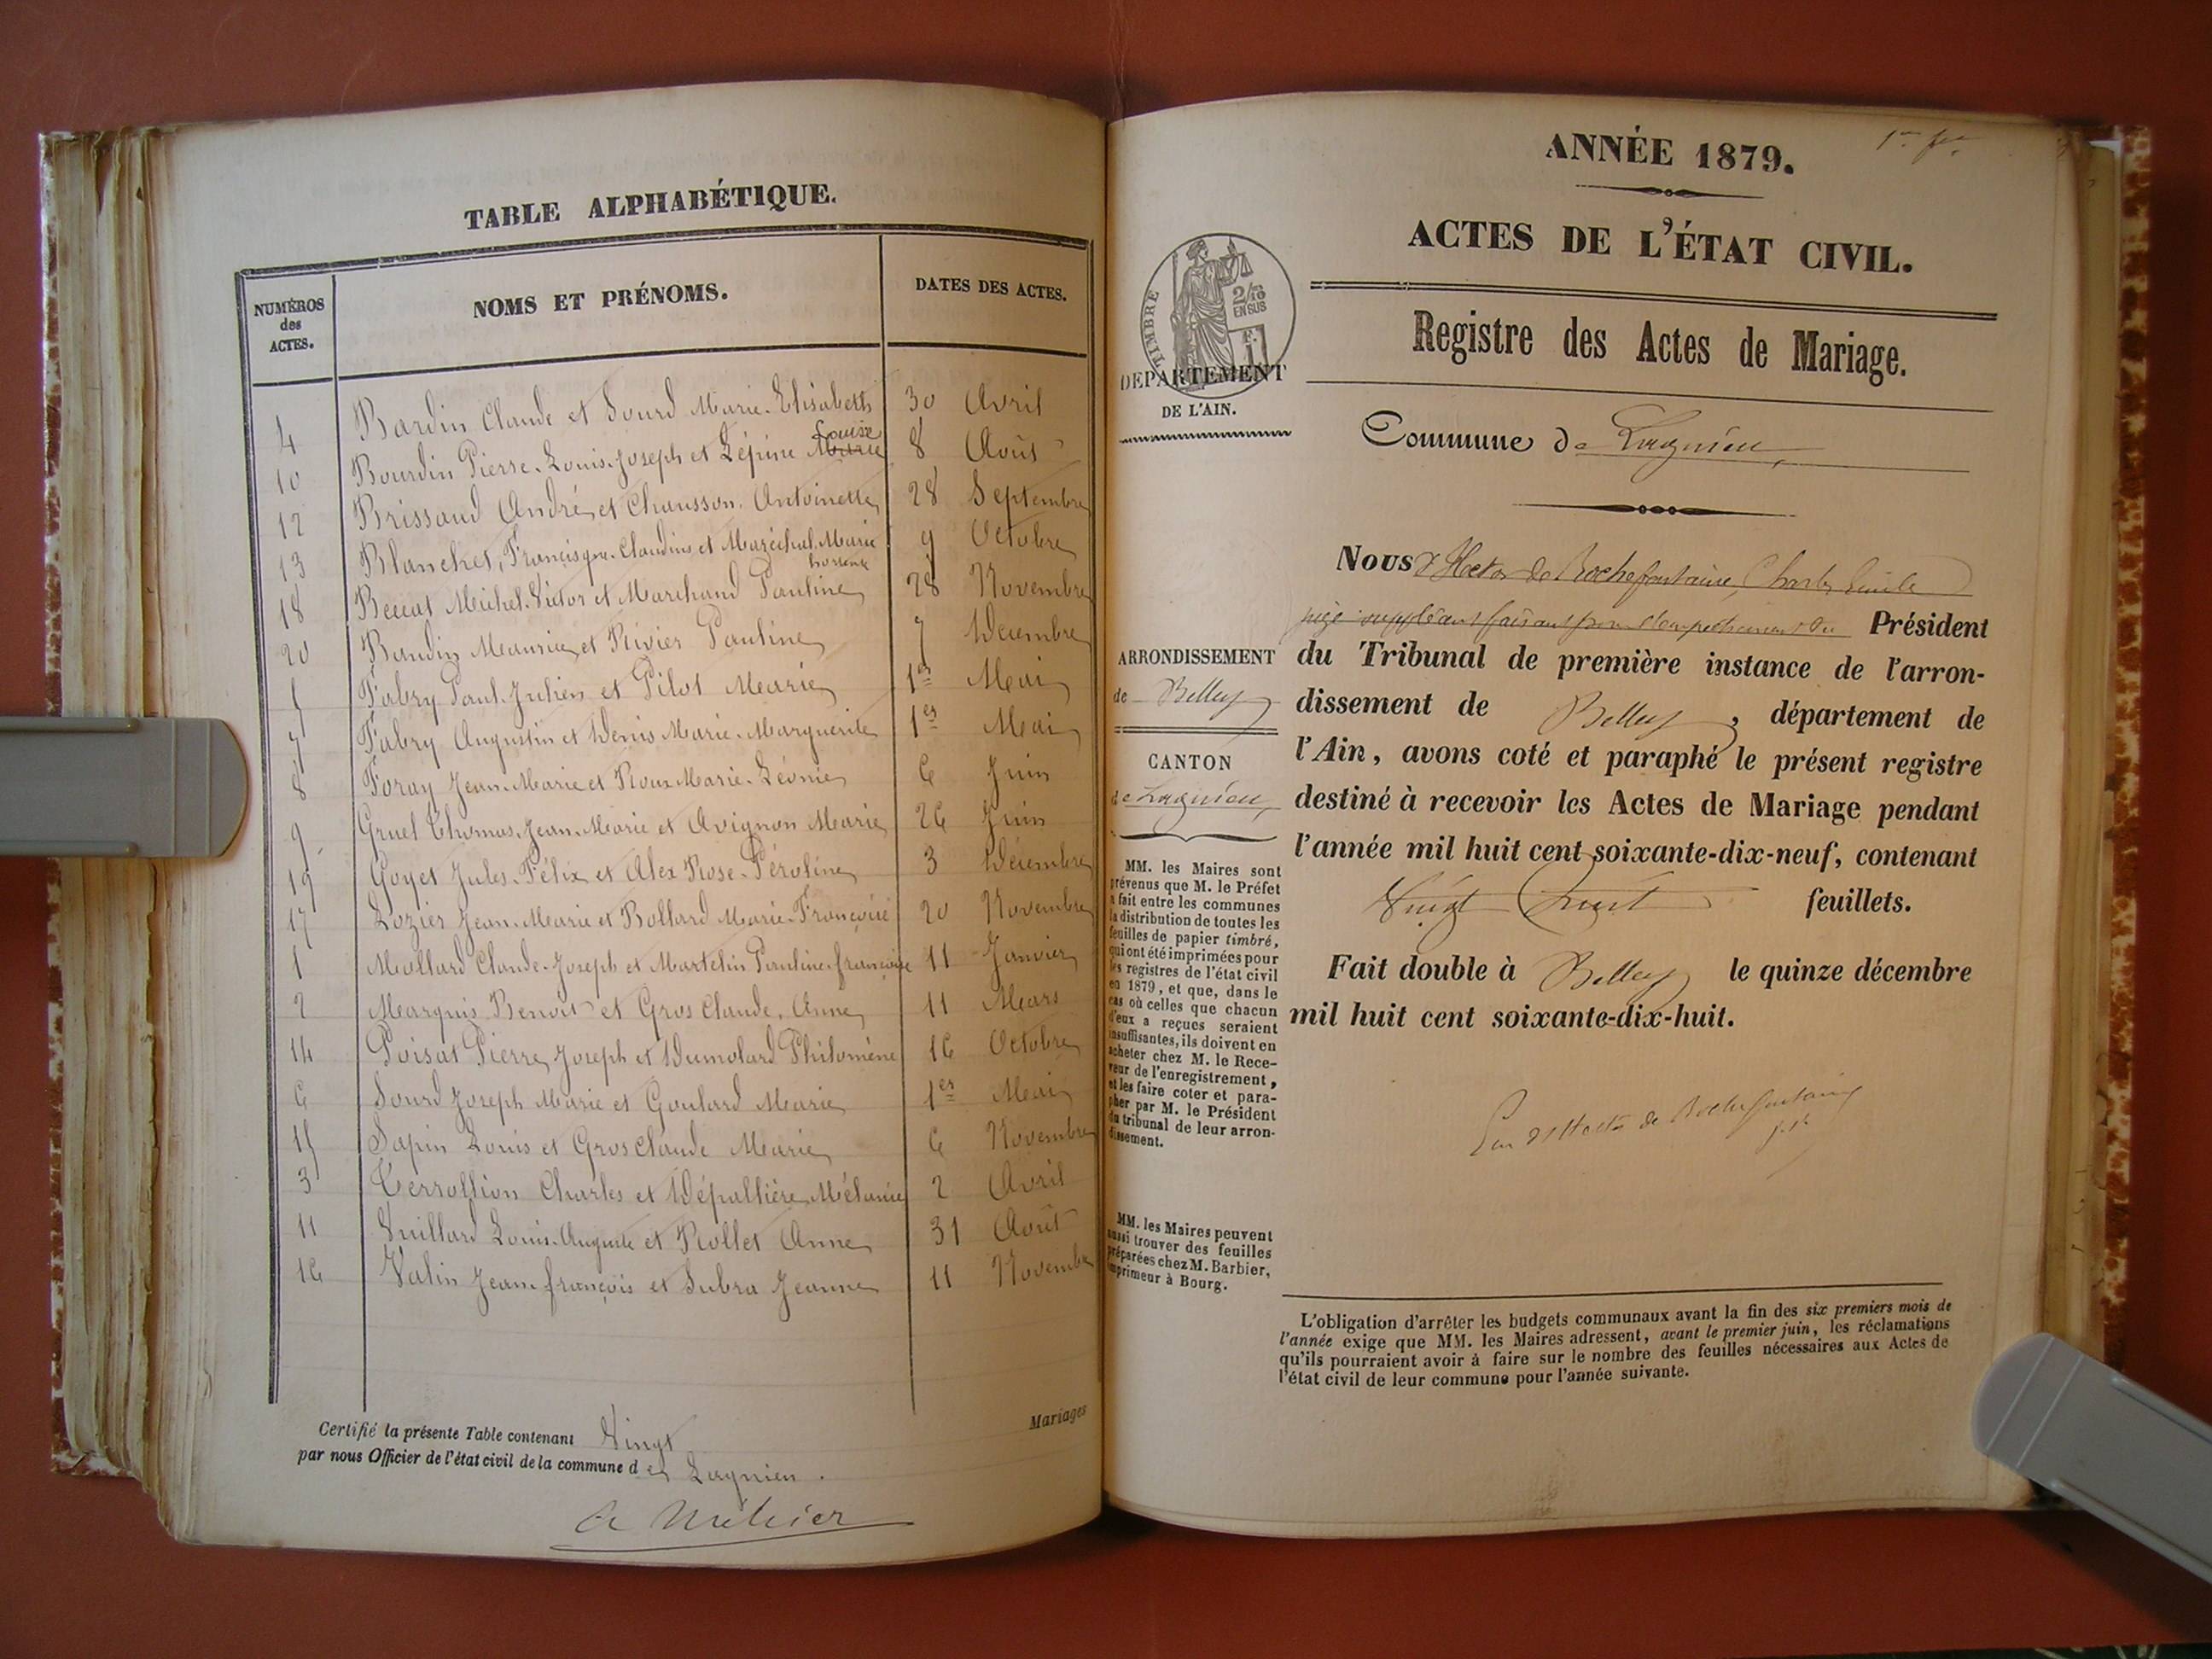 TABLE ALPHABÉTIQUE.
NUMÉROS des ACTES. NOMS ET PRÉNOMS. DATES DES ACTES.
4 Bardin Claude et Sourd Marie-Elisabeth 30 Avril
Louise
10 Bourdin Pierre-Louis-Joseph et Lépine Marie 8 Août
12 Brissaud André et Chausson Antoinette 28 Septembre
13 Blanchet, Francisque-Claudius et Maréchal Marie 9 Octobre
hortense
18 Beccat Michel-Victor et Marchand Pauline 28 Novembre
20 Baudin Maurice et Rivier Pauline 7 Décembre
Fabry Paul-Julien et Pilot Marie 1er Mai
7 Fabry Augustin et Denis Marie-Marguerite 1er Mai
8 Foray Jean-Marie et Roux Marie-Léonie 6 Juin
9 Gruel Thomas-Jean-Marie et Avignon Marie 26 Juin
19 Goyet Jules-Félix et Alex Rose-Péroline 3 Décembre
17 Lozier Jean-Marie et Bollard Marie-Françoise 20 Novembre
1 Mollard Claude-Joseph et Martelin Pauline françoise 11 Janvier
2 Marquis Benoit et Gros Claude, Anne 11 Mars
14 Poisat Pierre Joseph et Dumolard Philomène 16 Octobre
6 Sourd Joseph Marie et Goulard Marie 1er Mai
15 Sapin Louis et Grosclaude Marie 6 Novembre
3 Terrollion Charles et Dépallière Mélanie 2 Avril
11 Vuillard Louis-Auguste et Rollet Anne 31 Août
16 Valin Jean françois et Subra Jeanne 11 Novembre
Certifié la présente Table contenant Vingt Mariages
par nous Officier de l'état civil de la commune de Lagnieu.
ANNÉE 1879.
ACTES DE L'ÉTAT CIVIL.
Registre des Actes de Mariage.
TIMBRE
2/10 EN SUS
DÉPARTEMENT
DE L'AIN.
Commune de Lagnieu,
Nous d'Hector de Rochefontaine, Charles Emile
juge suppléant faisant pour l'empêchement du Président
du Tribunal de première instance de l'arron-
dissement de Belley, département de
l'Ain, avons coté et paraphé le présent registre
destiné à recevoir les Actes de Mariage pendant
l'année mil huit cent soixante-dix-neuf, contenant
Vingt huit feuillets.
Fait double à Belley le quinze décembre
mil huit cent soixante-dix-huit.
d'Hector de Rochefontaine
ARRONDISSEMENT
de Belley
CANTON
de Lagnieu,
MM. les Maires sont
prévenus que M. le Préfet
a fait entre les communes
la distribution de toutes les
feuilles de papier timbré,
qui ont été imprimées pour
les registres de l'état civil
en 1879, et que, dans le
cas où celles que chacun
d'eux a reçues seraient
insuffisantes, ils doivent en
acheter chez M. le Rece-
veur de l'enregistrement,
et les faire coter et para-
pher par M. le Président
du tribunal de leur arron-
dissement.
MM. les Maires peuvent
aussi trouver des feuilles
préparées chez M. Barbier,
imprimeur à Bourg.
L'obligation d'arrêter les budgets communaux avant la fin des six premiers mois de
l'année exige que MM. les Maires adressent, avant le premier juin, les réclamations
qu'ils pourraient avoir à faire sur le nombre des feuilles nécessaires aux Actes de
l'état civil de leur commune pour l'année suivante.